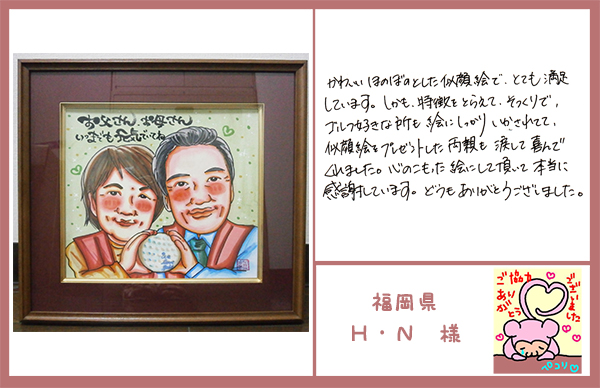 お父さん お母さん
いつまでも元気でいてね
かわいいほのぼのとした似顔絵で、とても満足
しています。しかも、特徴をとらえて、そっくりで、
ゴルフ好きな所も絵にしっかりいかされてて、
似顔絵をプレゼントした両親も涙して喜んで
いました。心のこもった絵にして頂いて本当に
感謝しています。どうもありがとうございました。
福岡県
H・N 様
ご協力
ありがとう
ございました
ペコリ